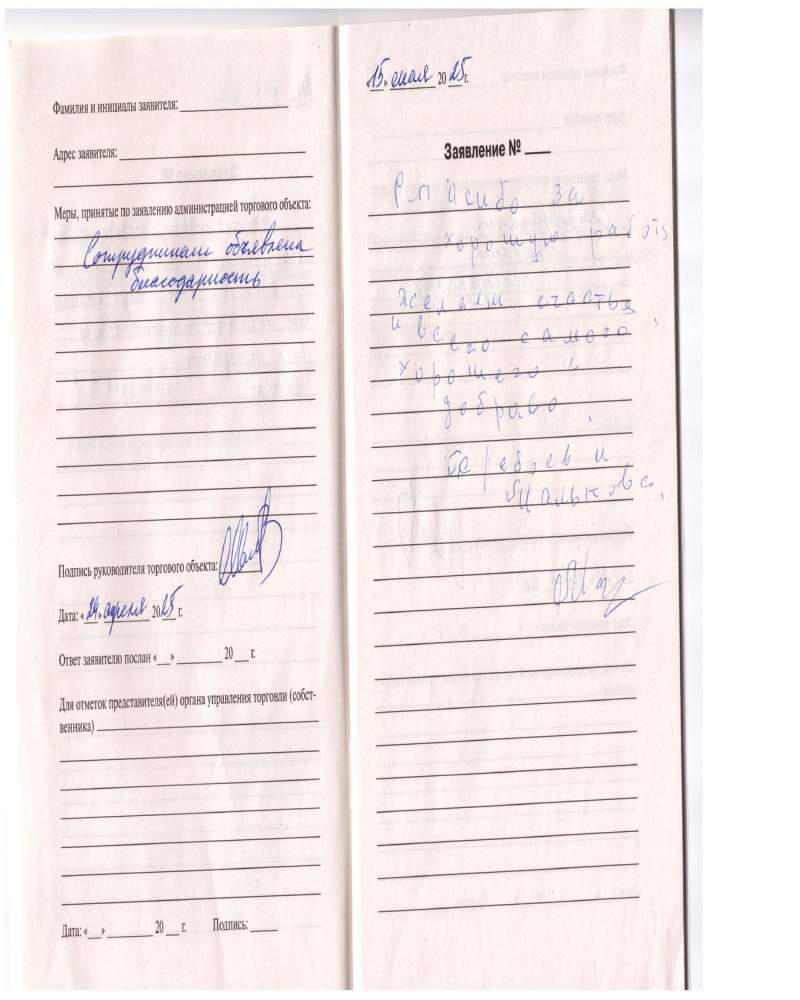 Фамилия и инициалы заявителя:
Адрес заявителя:
Меры, принятые по заявлению администрацией торгового объекта:
Сотрудникам объявлена
благодарность
Подпись руководителя торгового объекта:
Дата: «24» апреля 2025 г.
Ответ заявителю послан «__» ____ 20 __ г.
Для отметок представителя(ей) органа управления торговли (собст-
венника)
Дата: «__» ____ 20 __ г. Подпись:
«15» мая 2025 г.
Заявление №
Спасибо за
хорошую работу
желаем счастья
и всего самого
хорошего и
доброво.